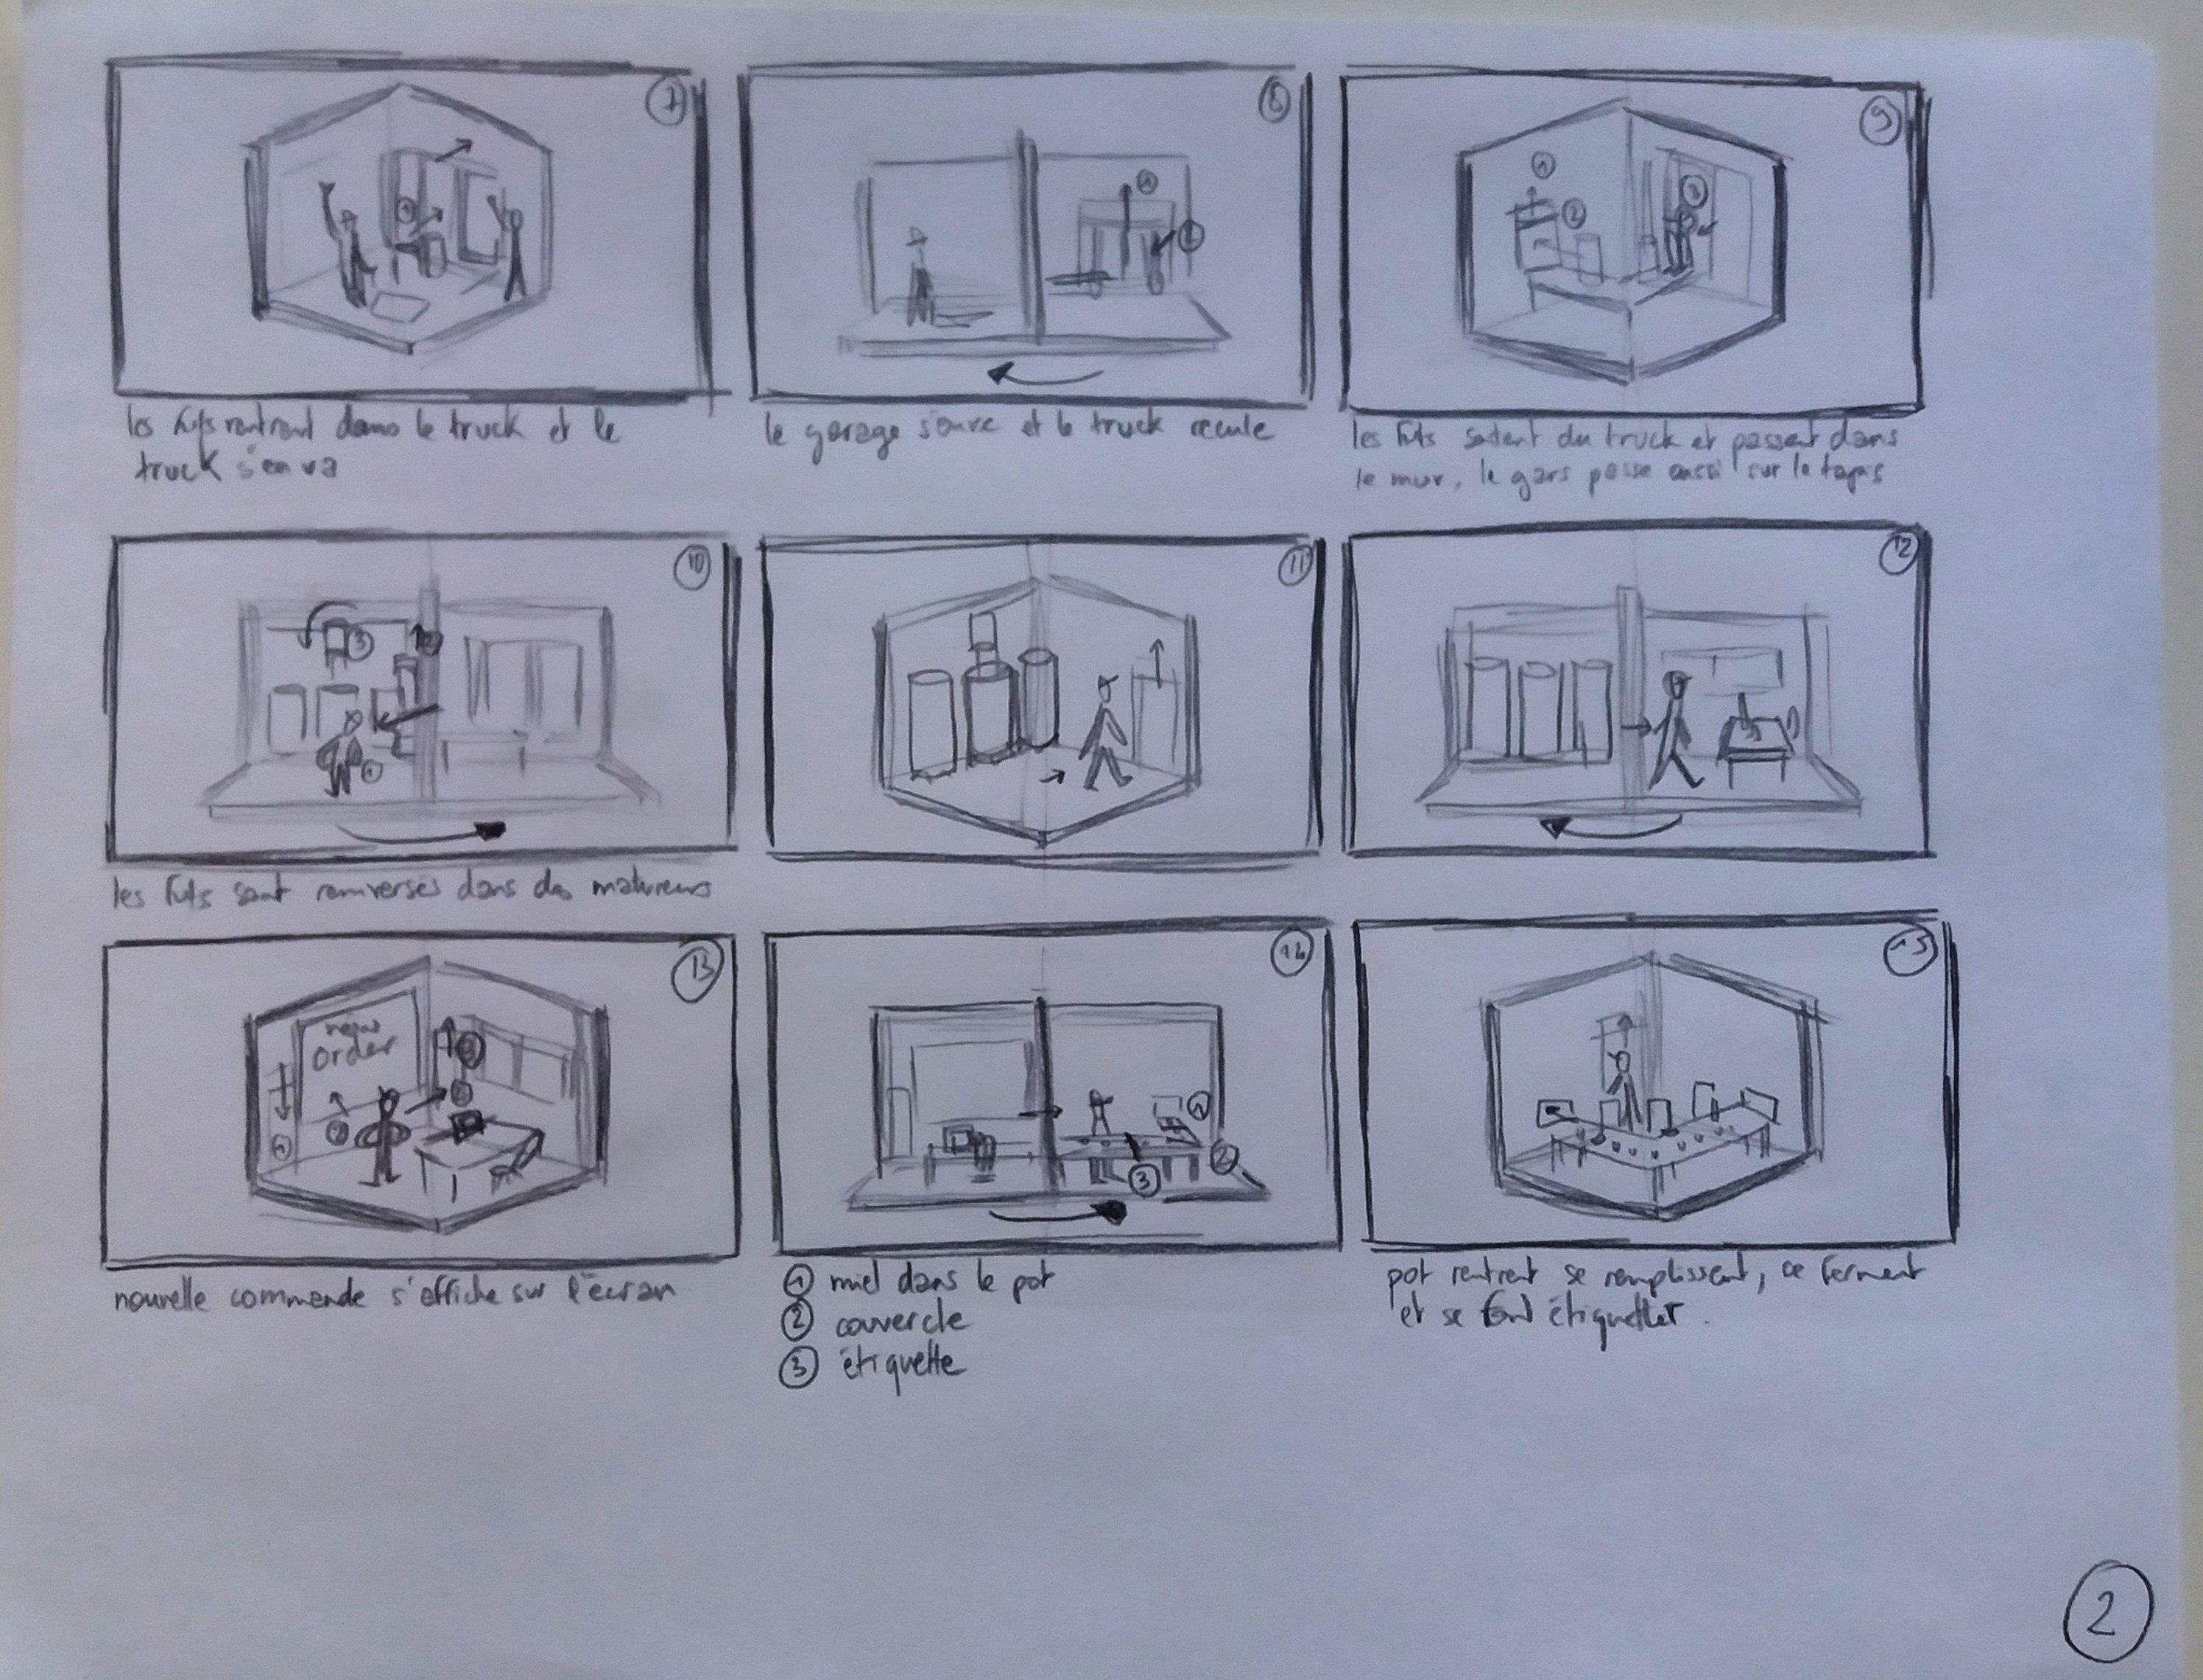 7
8
9
1
1
2
1
2
3
les futs rentrent dans le truck et le
truck s'en va
le garage s'ouvre et le truck recule
les futs sortent du truck et passent dans
le mur, le gars passe aussi sur le tapis
10
11
12
3
2
1
les futs sont renversés dans des matureurs
13
14
15
new
order
1
2
3
1
2
3
nouvelle commande s'affiche sur l'écran
1 miel dans le pot
2 couvercle
3 étiquette
pot rentrent se remplissent, ce ferment
et se font étiquetter.
2